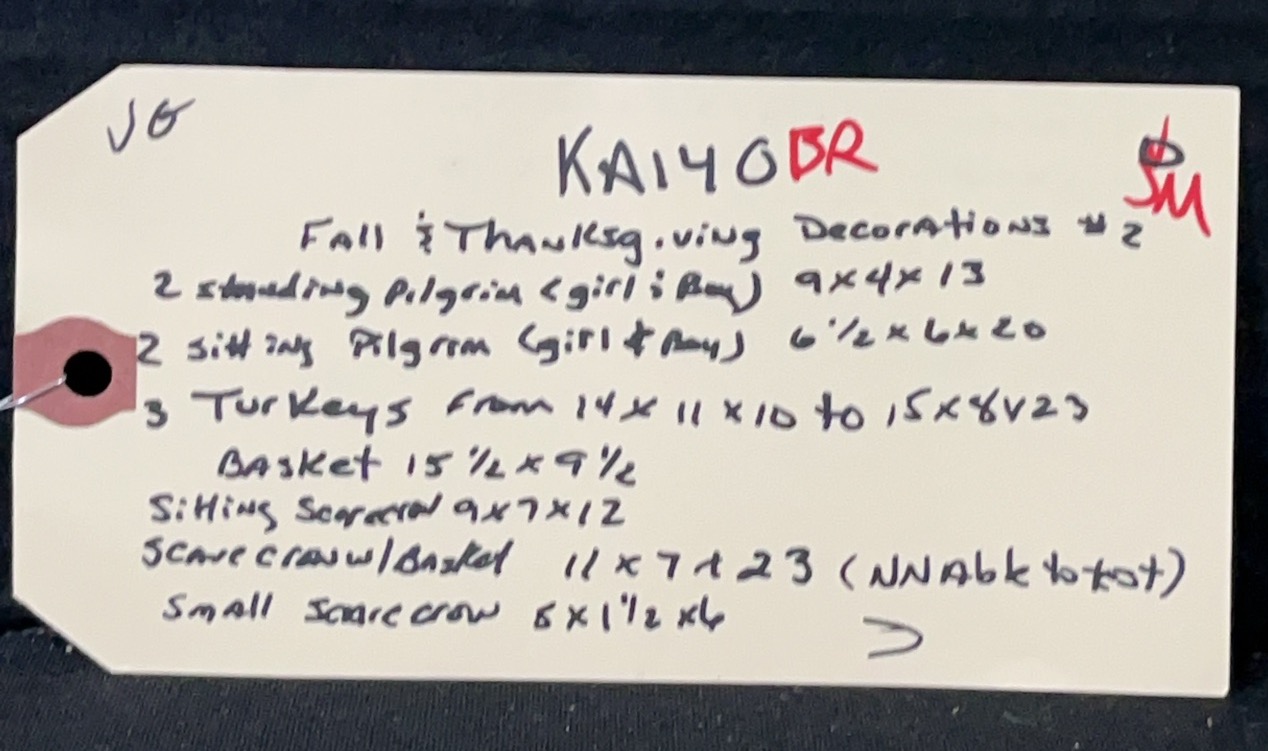 JG
KA140BR
JM
Fall & Thanksgiving Decorations #2
2 standing Pilgrim (girl & Boy) 9x4x13
2 Sitting Pilgrim (girl & Boy) 6 1/2 x 6 x 20
3 Turkeys From 14 x 11 x 10 to 15x8x23
Basket 15 1/2 x 9 1/2
Sitting Scarecrow 9x7x12
Scarecrow w/Basket 11 x 7 x 23 (NNAble to tot)
Small scarecrow 5 x 1 1/2 x6